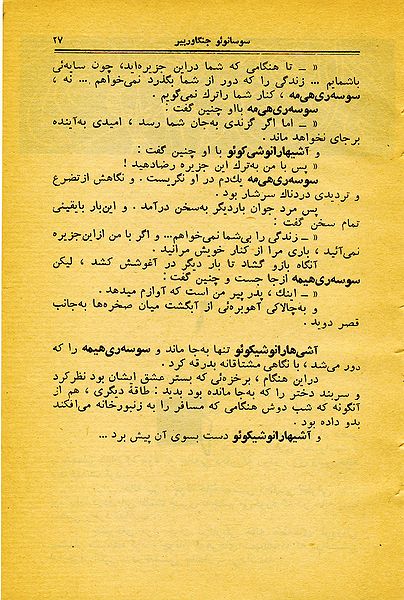 سوسانوئو جنگاوربیر ۲۷
« ــ تا هنگامی که شما دراین جزیره‌اید، چون سایه‌ئی
باشمایم ... زندگی را که دور از شما بگذرد نمی‌خواهم ... نه ،
سوسه‌ری‌هی‌مه ، کنار شما راترك نمی‌گویم .
سوسه‌ری‌هی‌مه بااو چنین گفت :
« ــ اما اگر گزندی به‌جان شما رسد ، امیدی به‌آینده
برجای نخواهد ماند .
و آشیهارانوشی‌کوئو با او چنین گفت :
« ــ پس با من به‌ترك این جزیره رضادهید !
سوسه‌ری‌هی‌مه یك‌دم در او نگریست . و نگاهش ازتضرع
و تردیدی دردناك سرشار بود .
پس مرد جوان باردیگر به‌سخن درآمد . و این‌بار بایقینی
تمام سخن گفت :
« ــ زندگی را بی‌شما نمی‌خواهم... و اگر با من ازاین‌جزیره
نمی‌آئید ، باری مرا از کنار خویش مرانید .
آنگاه بازو گشاد تا بار دیگر در آغوشش کشد ، لیکن
سوسه‌ری‌هیمه ازجا جست و چنین گفت :
« ــ اینك ، پدر پیر من است که آوازم میدهد .
و به‌چالاکی آهوبره‌ئی از آبگشت میان صخره‌ها به‌جانب
قصر دوید .
آشی‌هارانوشیکوئو تنها به‌جا ماند و سوسه‌ری‌هیمه را که
دور می‌شد ، با نگاهی مشتاقانه بدرقه کرد .
دراین هنگام ، برخزه‌ئی که بستر عشق ایشان بود نظرکرد
و سربند دختر را که به‌جا مانده بود بدید : طاقهٔ دیگری ، هم از
آنگونه که شب دوش هنگامی که مسافر را به زنبورخانه می‌افکند
بدو داده بود .
و آشیهارانوشیکوئو دست بسوی آن پیش برد ...